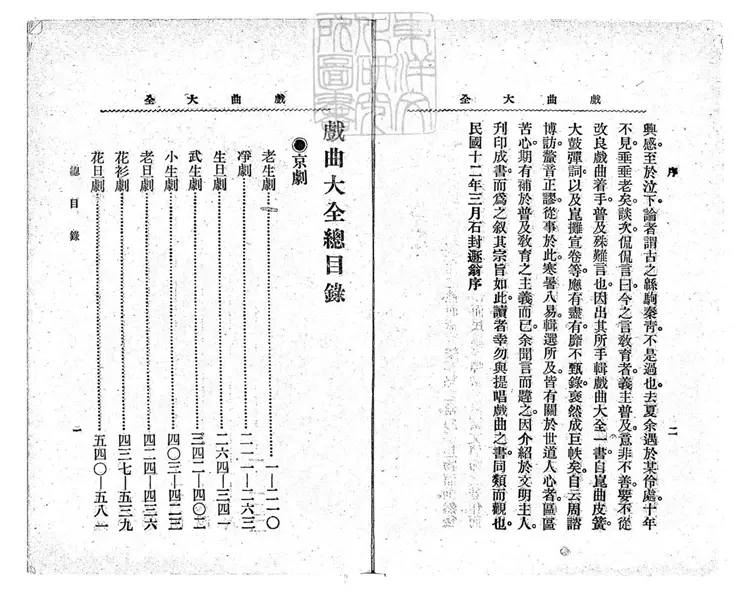 戲曲大全
序
二
興感至於泣下。論者謂古之緜駒秦青。不是過也。去夏余遇於某伶處。十年
不見。垂垂老矣。談次。侃侃言曰。今之言敎育者。義主普及。意非不善。要不從
改良戲曲着手。普及殊難言也。因出其所手輯戲曲大全一書。自崑曲皮簧
大鼓彈詞。以及崑攤宣卷等。應有盡有。靡不甄錄。裒然成巨帙矣。自云周諮
博訪。釐音正謬。從事於此。寒暑八易。輯選所及。皆有關於世道人心者。區區
苦心。期有補於普及敎育之主義而已。余聞言而韙之。因介紹於文明主人。
刋印成書。而爲之叙其宗旨如此。讀者幸勿與提唱戲曲之書。同類而觀也。
民國十二年三月石封遯翁序
戲曲大全
戲曲大全總目錄
●京劇
老生劇……一—二一〇
凈劇……二一一—二六三
生旦劇……二六四—三四一
武生劇……三四二—四〇二
小生劇……四〇三—四二三
老旦劇……四二四—四三六
花衫劇……四三七—五三九
花旦劇……五四〇—五八一
總目錄
一